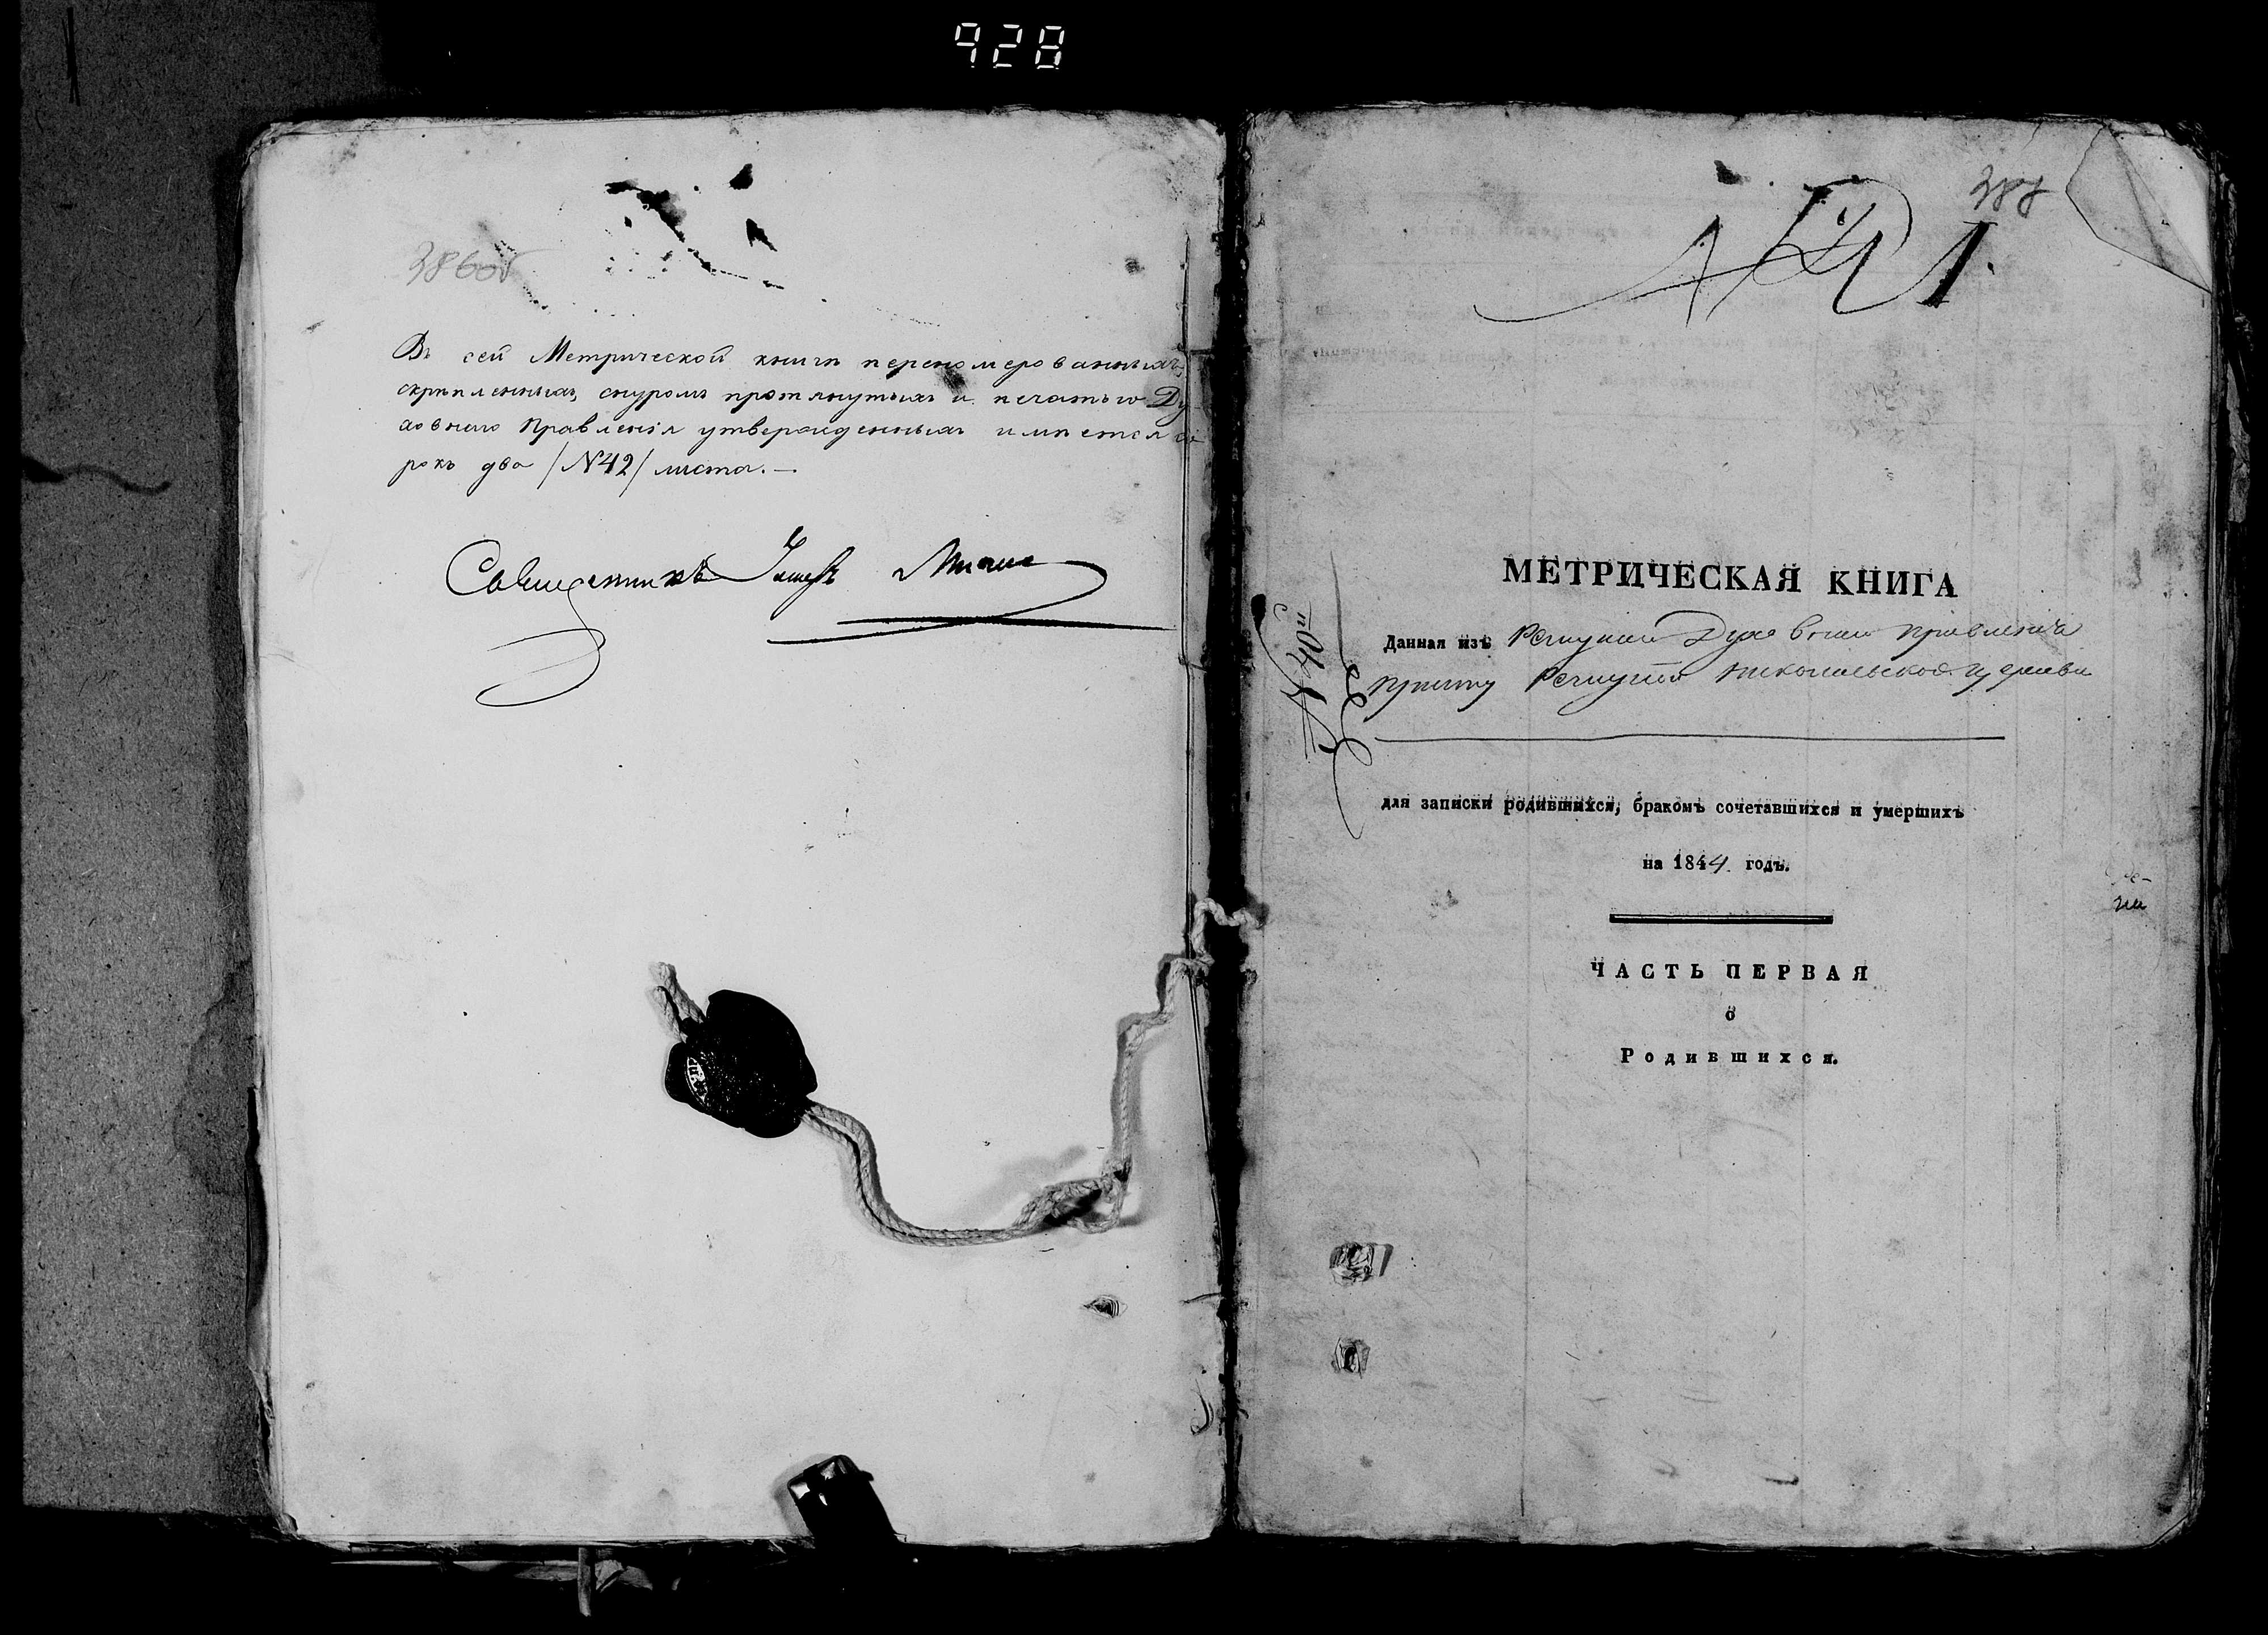 928
386об
Въ сей Метрической книгѣ перенумерованныхъ,
скрѣпленныхъ, снуромъ протянутыхъ и печатью Ду-
ховнаго Правленія утвержденныхъ имѣется со
рокъ два /N42/ листа. —
Священникъ
388
МЕТРИЧЕСКАЯ КНИГА
Данная изъ Речицкаго Духовнаго правленія
причту Речицкой Николаевской церкви
для записки родившихся, бракомъ сочетавшихся и умершихъ
на 1844 годъ.
ЧАСТЬ ПЕРВАЯ
о
Родившихся.